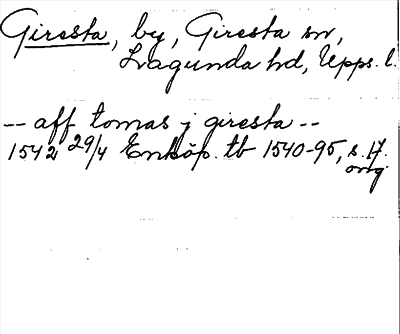 Giresta, by, Giresta sn,
Lagunda hd, Upps. l.
-- aff tomas j giresta --
1542 29/4 Enköp. tb 1540-95, s. 17.
orig.